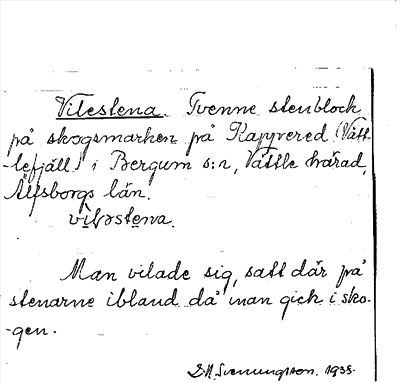 Vilestena. Tvenne stenblock
på skogsmarken på Kapprered (Vätt-
-lefjäll) i Bergum s:n, Vättle härad,
Älfsborgs län.
vìləstena.
Man vilade sig, satt där på
stenarne ibland då man gick i sko-
-gen.
Svenungsson. 1938.